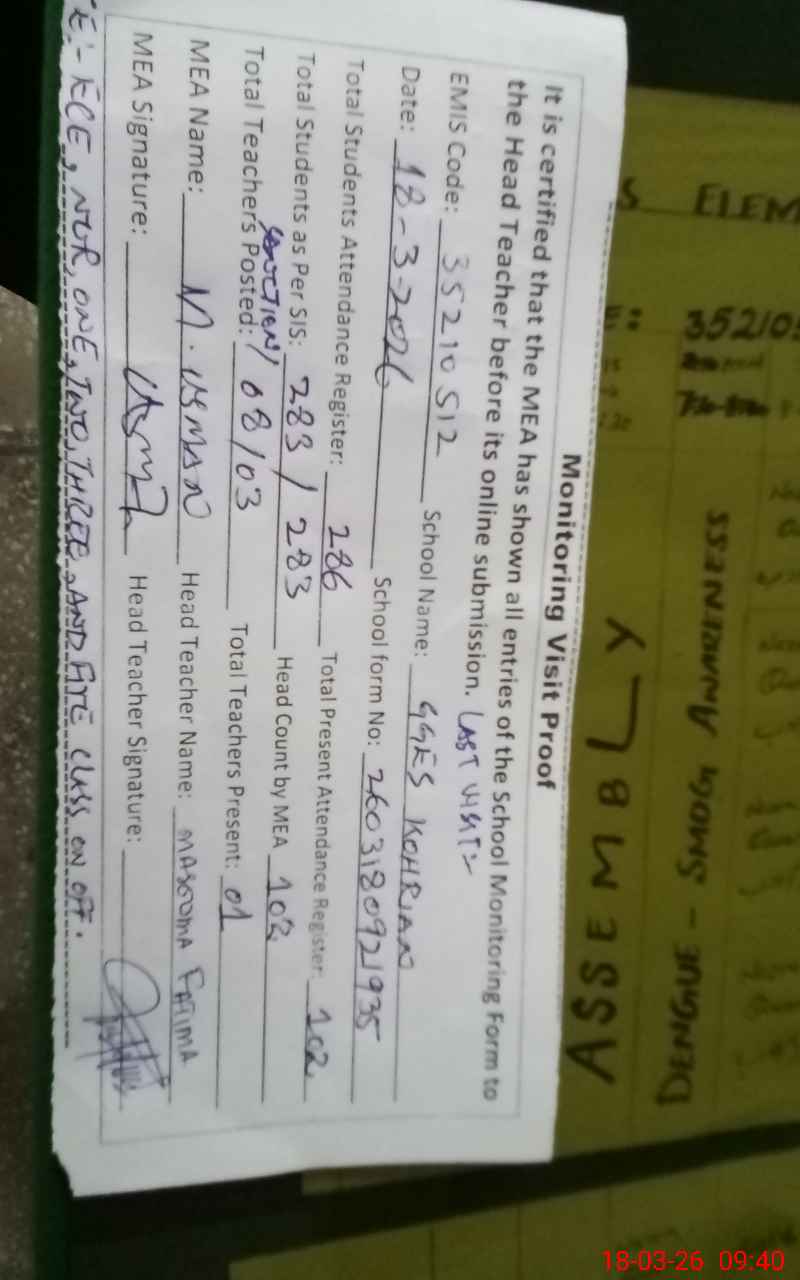 Monitoring Visit Proof
It is certified that the MEA has shown all entries of the School Monitoring Form to
the Head Teacher before its online submission. LAST VISIT:-
EMIS Code: 35210512 School Name: GGES KOHRIAN
Date: 18-3-2026 School form No: 2603180921935
Total Students Attendance Register: 286 Total Present Attendance Register: 102
Total Students as Per SIS: 283 / 283 Head Count by MEA 102
SANCTION/
Total Teachers Posted: 08/03 Total Teachers Present: 01
MEA Name: M. USMAN Head Teacher Name: MASOOMA FATIMA
MEA Signature: Usman Head Teacher Signature:
E:- ECE, NUR, ONE, TWO, THREE, AND FIVE CLASS ON OFF.
S ELEM
E: 35210
ASSEMBLY
DENGUE - SMOG AWARENESS
18-03-26 09:40